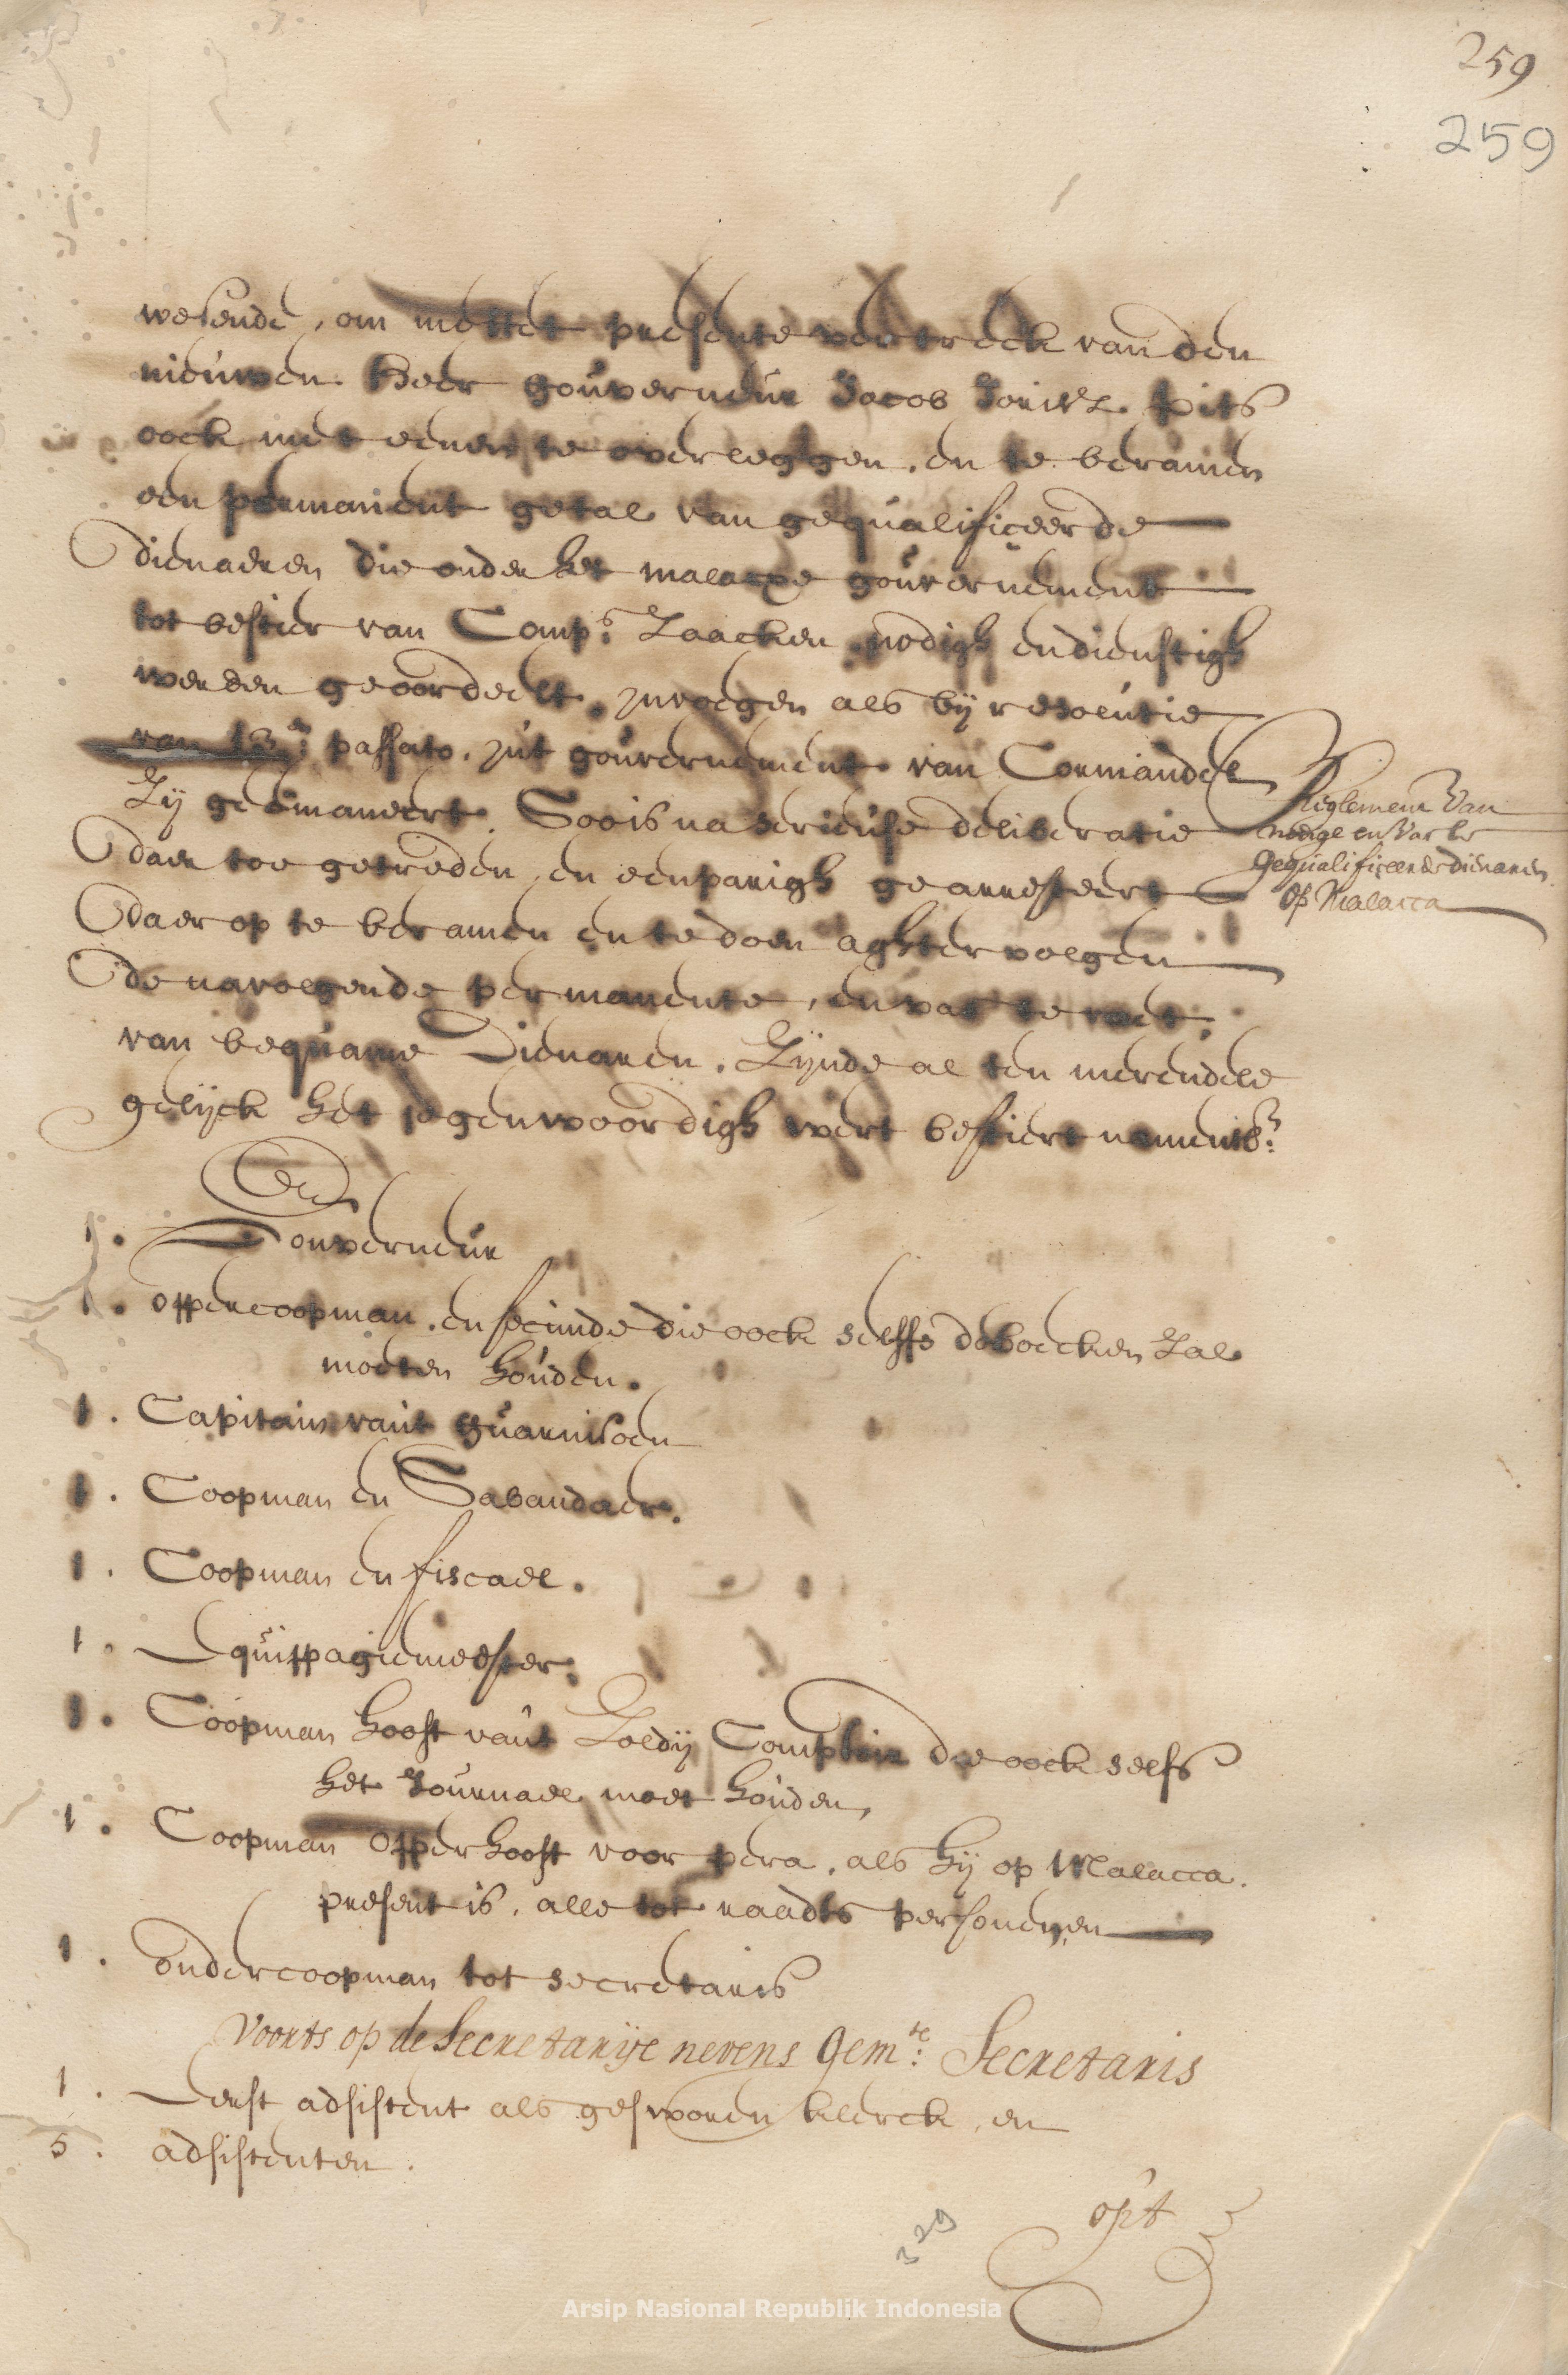 259
259
wesende, om met het presente vertreck van den
nieuwen Heer Gouverneur Jacob Jorisz. Pits
oock met eenen te overleggen, en te beramen
een permanent getal van gequalificeerde
dienaeren die onder het malaxe gouvernement
tot bestier van Comp:s Zaacken nodigh en dienstigh
werden geoordeelt, invoegen als bij resolutie
van 13:en passato, int gouvernement van Cormandel
Zij geëmaneert. Soo is na serieuse deliberatie
daer toe getreden, en eenparigh gearresteert
daer op te beramen en te doen aghtervolgen
de navolgende permanente, en vaste voet.
van bequame Dienaren. Zijnde al ten merendele
gelijck het jegenwoordigh wert bestiert namentl:
Reglement Van
nodige en Vaste
gequalificeerde dienaren
op Malacca
Een
1. Gouverneur
1. oppercoopman, en secunde die oock selffs de boecken Zal
moeten houden.
1. Capitain vant guarnisoen
1. Coopman en Sabandaer.
1. Coopman en fiscael.
1. Equippagiemeester.
1. Coopman hooft vant Zoldij Comptoir die oock selfs
het Journael moet houden,
1. Coopman Opperhooft voor pera, als hij op Malacca.
present is, alle tot raadts persoonen
1. ondercoopman tot secretaris
Voorts op de Secretarije nevens gem:te Secretaris
1. Eerst adsistent als geswooren klerck, en
5. adsistenten.
op't
329
Arsip Nasional Republik Indonesia